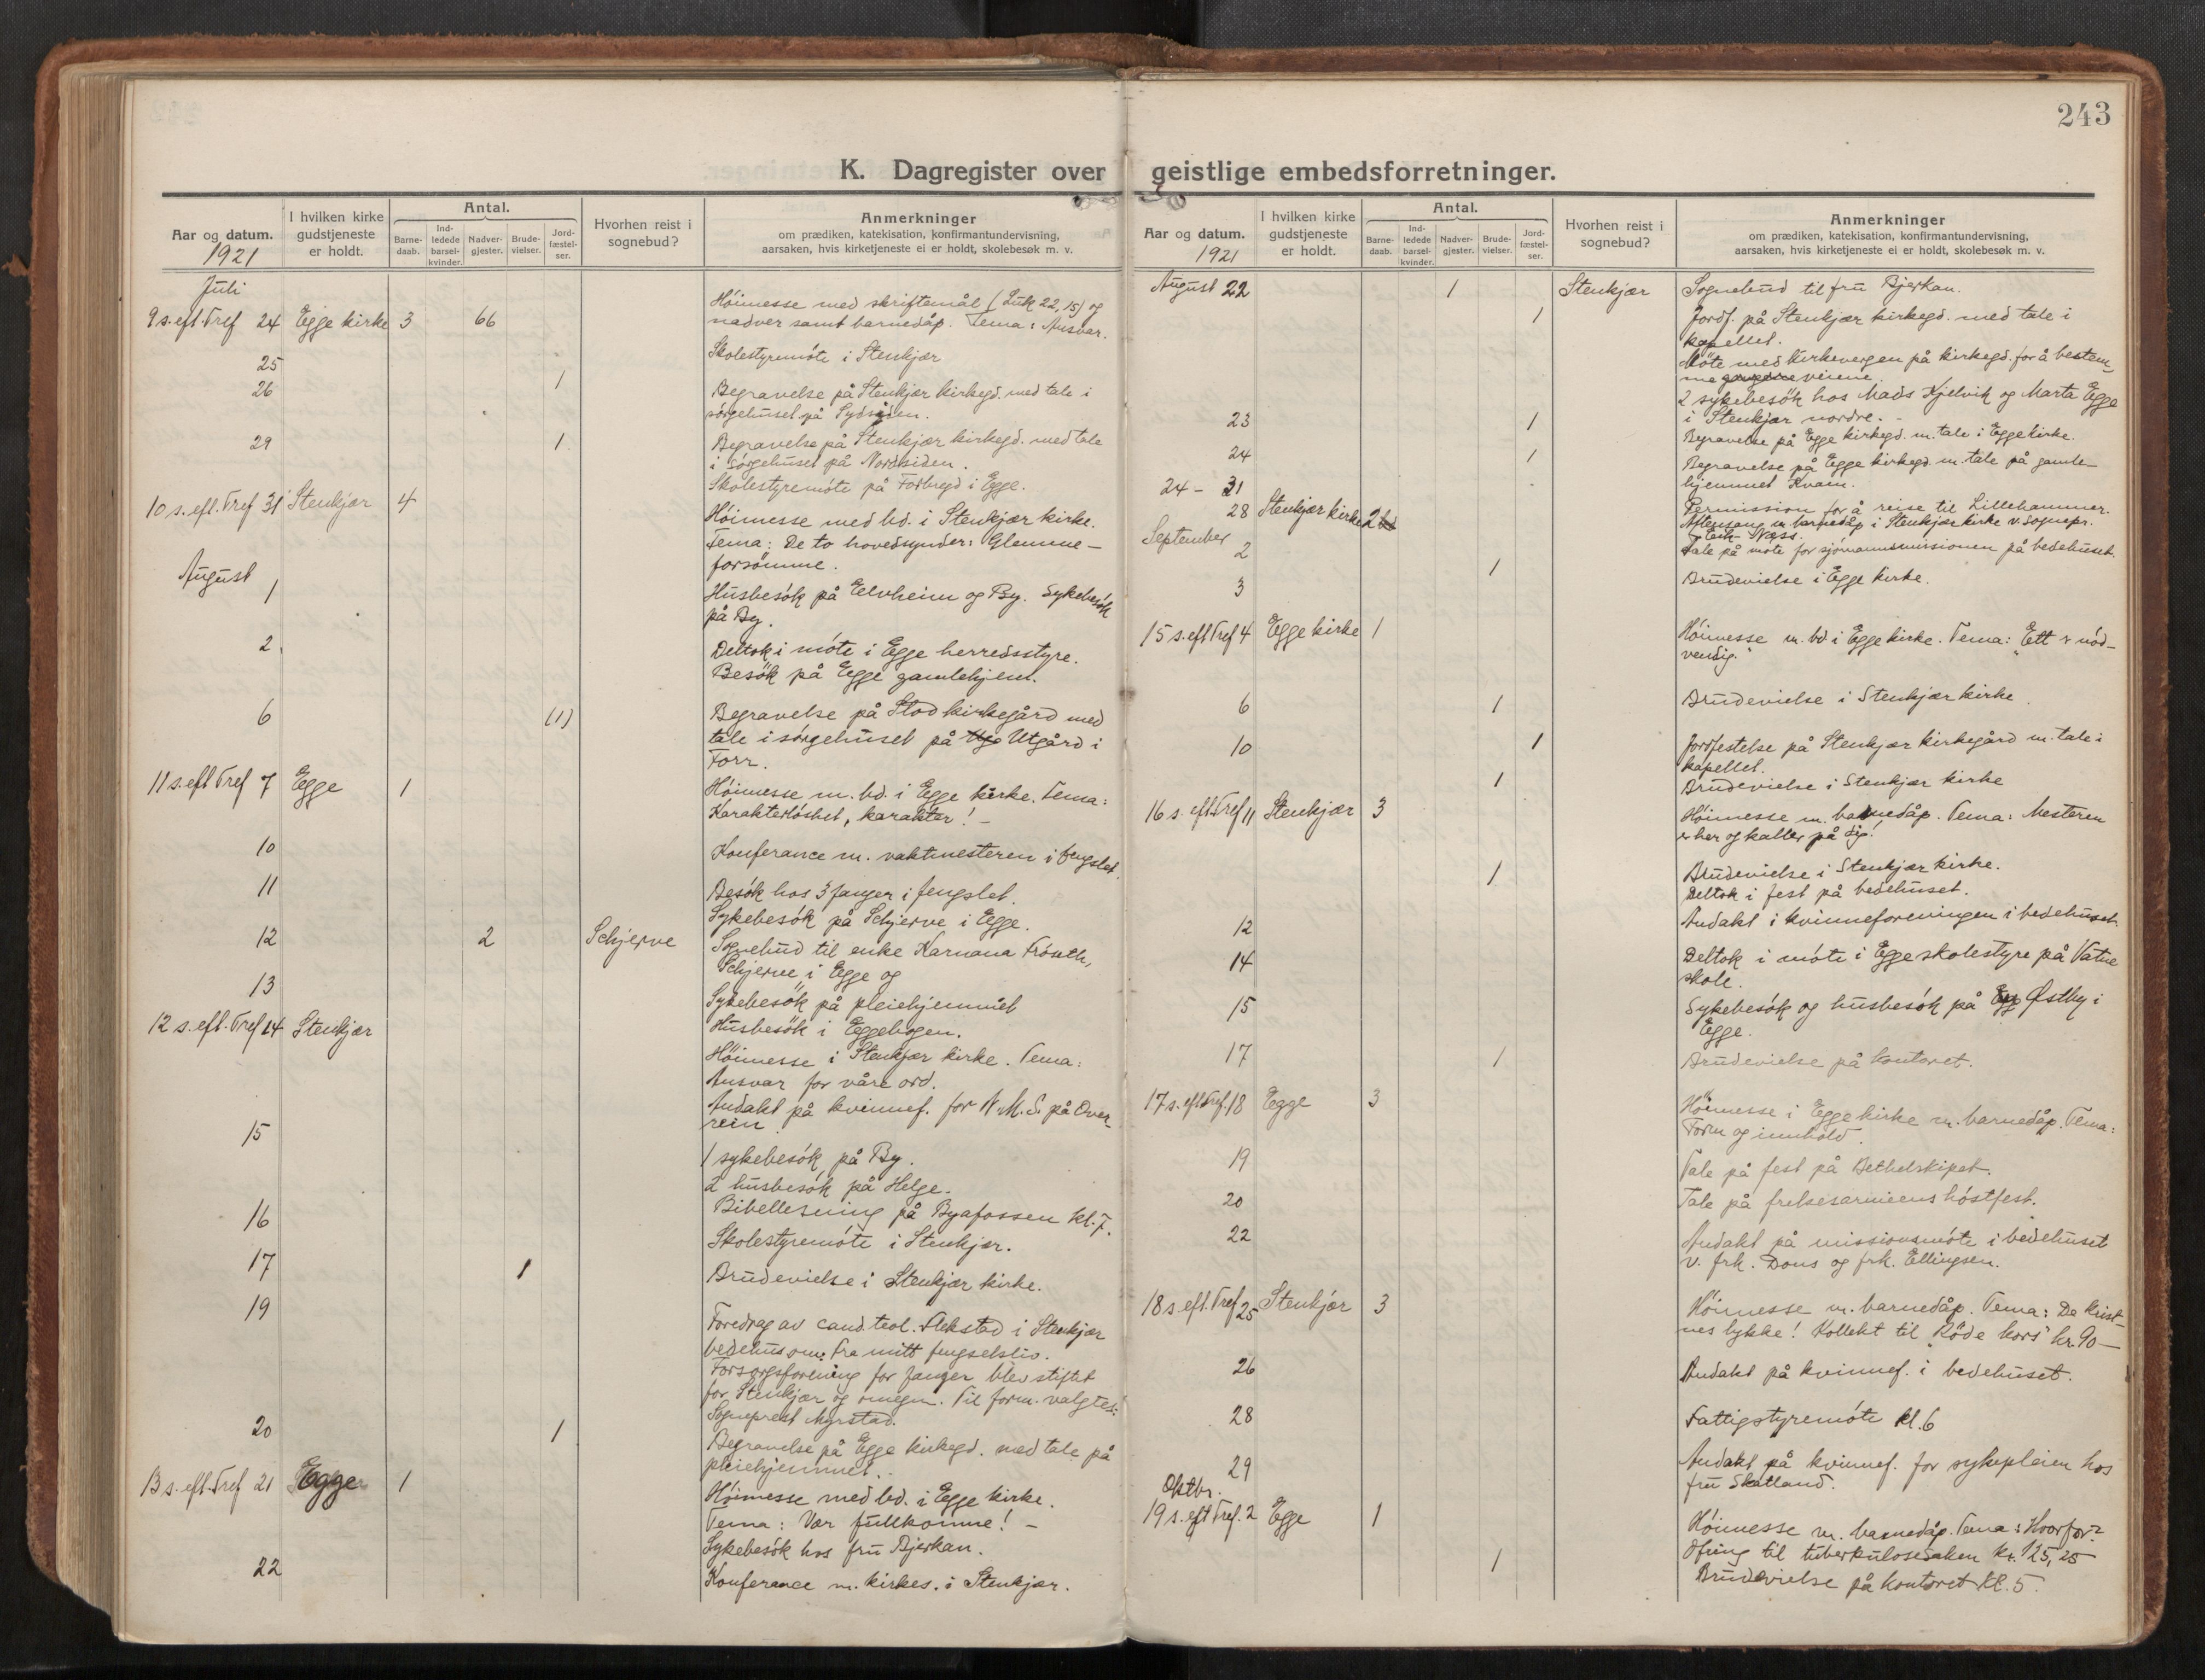 243
K. Dagregister over geistlige embedsforretninger.
Aar og datum.
1921
I hvilken kirke gudstjeneste er holdt.
Antal.
Barne-daab.
Ind-ledede barsel-kvinder.
Nadver-gjester.
Brude-vielser.
Jord-fæstel-ser.
Hvorhen reist i sognebud?
Anmerkninger
om prædiken, katekisation, konfirmantundervisning,
aarsaken, hvis kirketjeneste ei er holdt, skolebesøk m. v.
Juli
9 s. eft. Tref 24 Egge kirke 3 66
Höimesse med skriftemål (Luk 22, 15) og
nadver samt barnedåp. Tema: Ansvar.
25
Skolestyremöte i Stenkjær
26 1
Begravelse på Stenkjær kirkegd. med tale i
sörgehuset på Sydsiden.
29 1
Begravelse på Stenkjær kirkegd. med tale
i sörgehuset på Nordsiden.
Skolestyremöte på Forbregd i Egge.
10 s. eft. Tref 31 Stenkjær 4
Höimesse med bd. i Stenkjær kirke.
Tema: De to hovedsynder: Glemme –
forsömme.
August
1
Husbesök på Elvheim og By. Sykebesök
på By.
2
Deltok i möte i Egge herredsstyre.
Besök på Egge gamlehjem.
6 (1)
Begravelse på Stod kirkegård med
tale i sörgehuset på Utgård i
Forr.
11 s. eft Tref 7 Egge 1
Höimesse m. bd. i Egge kirke. Tema:
Karakterlöshet, karakter! –
10
Konferance m. vaktmesteren i fengslet.
11
Besök hos 3 fanger i fengslet.
Sykebesök på Schjerve i Egge.
12 2 Schjerve
Sognebud til enke Karnana
Schjerve i Egge og
13
Sykebesök på pleiehjemmet
Husbesök i Eggebogen.
12 s. eft. Tref 14 Stenkjær
Höimesse i Stenkjær kirke. Tema:
Ansvar for våre ord.
Andakt på kvinnef. for N.M.S. på Over-
rein.
15
1 sykebesök på By.
2 husbesök på Helge.
Bibellesning på Byafossen kl. 7.
16
Skolestyremöte i Stenkjær.
17 1
Brudevielse i Stenkjær kirke.
19
Foredrag av cand. teol. Flekstad i Stenkjær
bedehus om: Fra mitt fengselsliv.
Forsorgsforening for fanger blev stiftet
for Stenkjær og omegn. Til form. valgtes:
Sogneprest Myrstad.
20 1
Begravelse på Egge kirkegd. med tale på
pleiehjemmet.
13 s. eft. Tref 21 Egge 1
Höimesse med bd. i Egge kirke.
Tema: Vær fullkomne! –
Sykebesök hos fru Bjerkan.
22
Konferance m. kirkes. i Stenkjær.
Aar og datum.
1921
I hvilken kirke gudstjeneste er holdt.
Antal.
Barne-daab.
Ind-ledede barsel-kvinder.
Nadver-gjester.
Brude-vielser.
Jord-fæstel-ser.
Hvorhen reist i sognebud?
Anmerkninger
om prædiken, katekisation, konfirmantundervisning,
aarsaken, hvis kirketjeneste ei er holdt, skolebesøk m. v.
August 22 1 Stenkjær
Sognebud til fru Bjerkan.
1
Jordf. på Stenkjær kirkegd. med tale i
kapellet.
Möte med kirkevergen på kirkegd. for å bestem-
me veiene.
2 sykebesök hos Mads Kjelvik og Marta Egge
i Stenkjær nordre. –
23 1
Begravelse på Egge kirkegd. m. tale i Egge kirke.
24 1
Begravelse på Egge kirkegd. m. tale på gamle-
hjemmet Kvam.
24 – 31
Permission for å reise til Lillehammer.
28 Stenkjær kirke 2
Aftensang m. barnedåp i Stenkjær kirke v. sognepr.
Næss.
September 2
Tale på möte for sjömannsmissionen på bedehuset.
3 1
Brudevielse i Egge kirke.
15 s. eft Tref 4 Egge kirke 1
Höimesse m. bd i Egge kirke. Tema: "Ett er nöd-
vendig."
6 1
Brudevielse i Stenkjær kirke.
10 1
Jordfestelse på Stenkjær kirkegård m. tale i
kapellet.
1
Brudevielse i Stenkjær kirke
16 s. eft. Tref 11 Stenkjær 3
Höimesse m. barnedåp. Tema: Mesteren
er her og kaller på dig!
1
Brudevielse i Stenkjær kirke.
Deltok i fest på bedehuset.
12
Andakt i kvinneforeningen i bedehuset.
14
Deltok i möte i Egge skolestyre på Vatne
skole.
15
Sykebesök og husbesök på Østby i
Egge.
17 1
Brudevielse på kontoret.
17 s. eft Tref. 18 Egge 3
Höimesse i Egge kirke m. barnedåp. Tema:
Form og innhold.
19
Tale på fest på Bethelskipet.
20
Tale på frelsesarmeens höstfest.
22
Andakt på missionsmöte i bedehuset
v. frk. Dons og frk. Ellingsen.
18 s. eft. Tref 25 Stenkjær 3
Höimesse m. barnedåp. Tema: De krist-
nes lykke! Kollekt til "Röde kors" kr. 90 –
26
Andakt på kvinnef. i bedehuset.
28
Fattigstyremöte kl. 6
29
Andakt på kvinnef. for sykepleien hos
fru Skatland.
Oktbr.
19 s. eft Tref. 2 Egge 1
Höimesse m. barnedåp. Tema: Hvorfor?
Ofring til tuberkulosesaken kr. 125,25
1
Brudevielse på kontoret kl. 5.